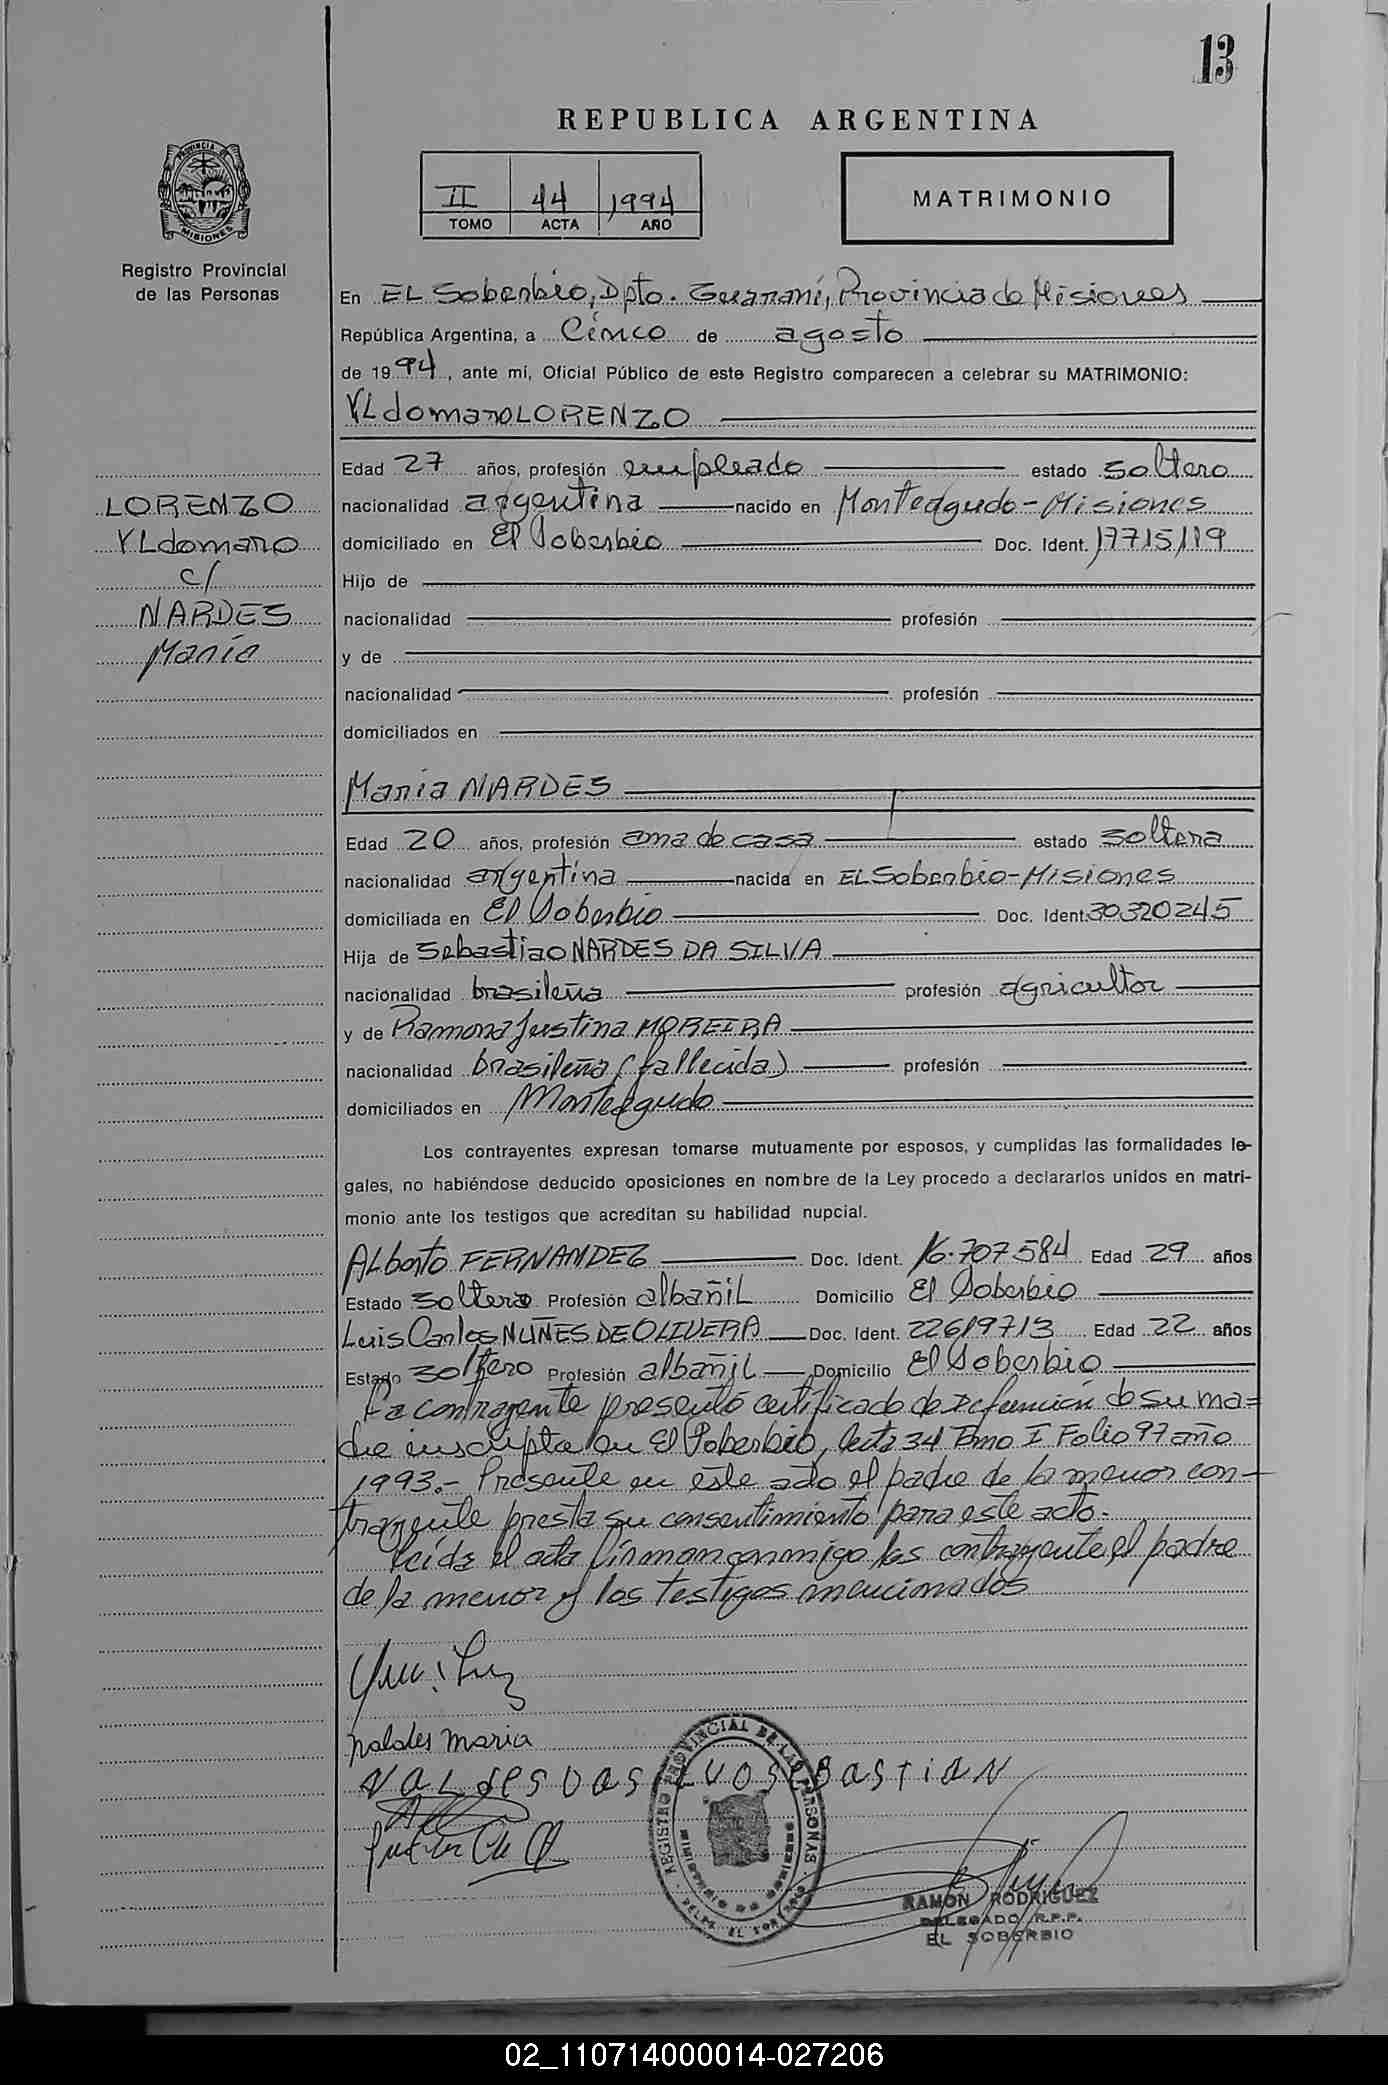 13
REPUBLICA ARGENTINA
II 44 1994
TOMO ACTA AÑO
MATRIMONIO
PROVINCIA DE
MISIONES
Registro Provincial
de las Personas
En EL Soberbio, Dpto. Guaraní, Provincia de Misiones
República Argentina, a Cinco de agosto
de 1994, ante mí, Oficial Público de este Registro comparecen a celebrar su MATRIMONIO:
YLdomaro LORENZO
Edad 27 años, profesión empleado estado soltero
LORENZO
YLdomaro
c/
NARDES
María
nacionalidad argentina nacido en Monteagudo - Misiones
domiciliado en El Soberbio Doc. Ident. 17715119
Hijo de
nacionalidad profesión
y de
nacionalidad profesión
domiciliados en
Maria NARDES
Edad 20 años, profesión ama de casa estado soltera
nacionalidad argentina nacida en EL Soberbio - Misiones
domiciliada en El Soberbio Doc. Ident. 30320245
Hija de Sebastiao NARDES DA SILVA
nacionalidad brasileña profesión agricultor
y de Ramona Justina MOREIRA
nacionalidad brasileña (fallecida) profesión
domiciliados en Monteagudo
Los contrayentes expresan tomarse mutuamente por esposos, y cumplidas las formalidades le-
gales, no habiéndose deducido oposiciones en nombre de la Ley procedo a declararlos unidos en matri-
monio ante los testigos que acreditan su habilidad nupcial.
ALberto FERNANDEZ Doc. Ident. 16.707.584 Edad 29 años
Estado soltero Profesión albañil Domicilio El Soberbio
Luis Carlos NUÑES DE OLIVERA Doc. Ident. 22619713 Edad 22 años
Estado soltero Profesión albañil Domicilio El Soberbio
La contrayente presentó certificado de Defunción de su ma=
dre inscripta en El Soberbio, Acta 34 Tomo I Folio 97 año
1993.- Presente en este acto el padre de la menor con-
trayente presta su consentimiento para este acto.
Leída el acta firman conmigo los contrayente el padre
de la menor y los testigos mencionados
naldes maria
REGISTRO PROVINCIAL DE LAS PERSONAS
MINISTERIO DE GOBIERNO
DELEG. EL SOBERBIO
RAMON RODRIGUEZ
DELEGADO R.P.P.
EL SOBERBIO
02_110714000014-027206